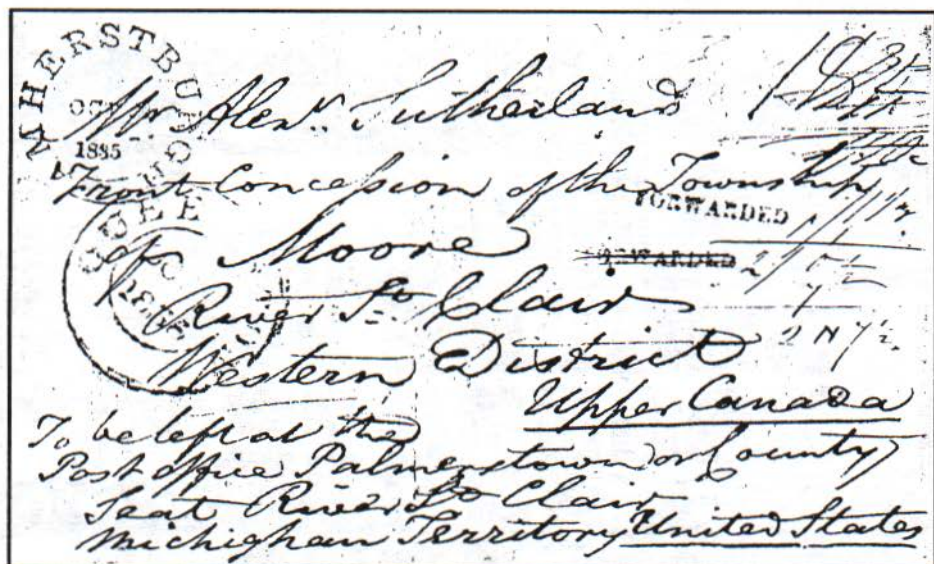 AMHERSTBURGH
1835
Mr Alexr. Sutherland
Front Concession of the Township
FORWARDED
of Moore
FORWARDED
QUEBEC
River St Clair
Western District
Upper Canada
To be left at the
Post office Palmerstown or County
Seat River St Clair
Michighan Territory United States